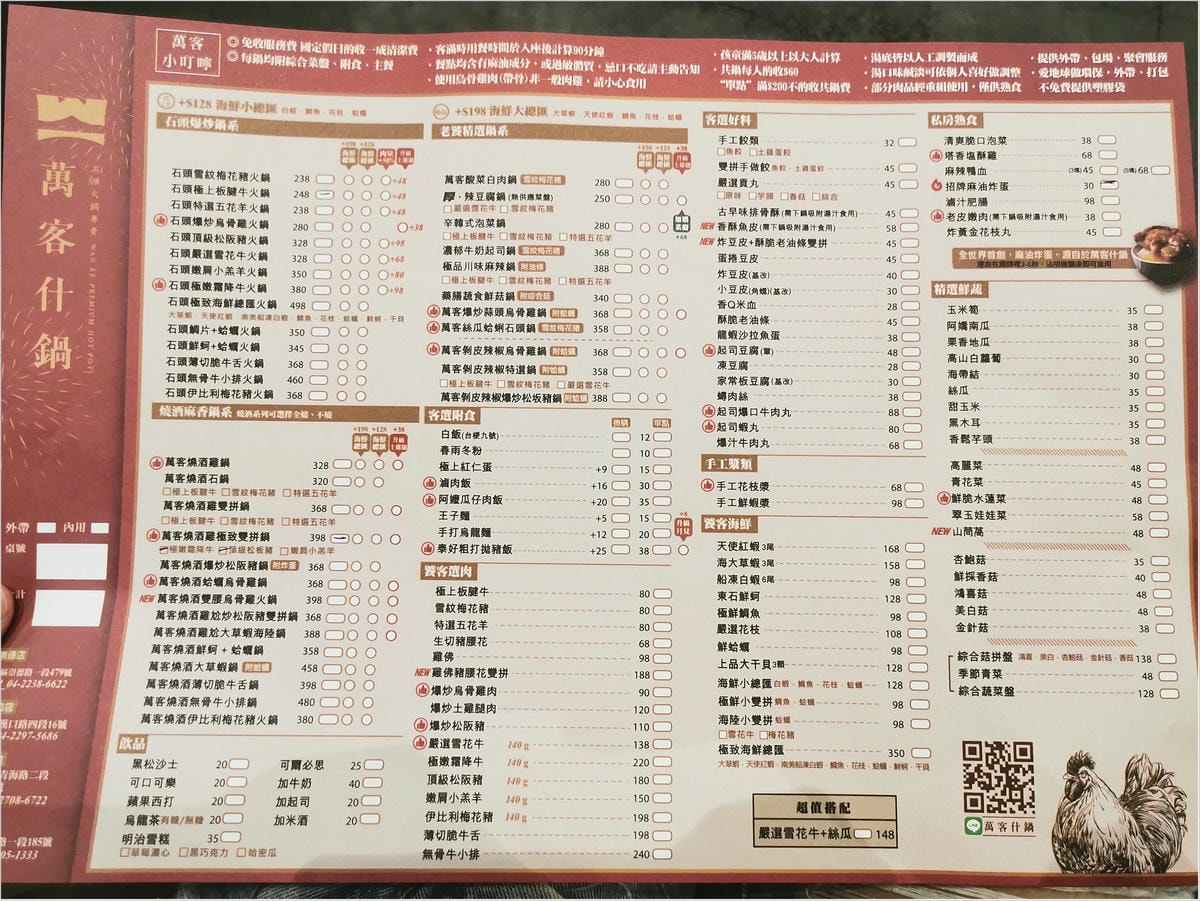 萬客什鍋
石頭火鍋專賣 WAN KE PREMIUM HOT POT
外帶 內用
桌號
計
德路一段479號
04-2238-6622
漢口路四段16號
4-2297-5686
青海路二段
2708-6722
路一段185號
05-1333
萬客小叮嚀
◎ 免收服務費 國定假日酌收一成清潔費
◎ 每鍋均附綜合菜盤、附食、主餐
・客滿時用餐時間於入座後計算90分鐘
・餐點均含有麻油成分，或過敏體質，忌口不吃請主動告知
・使用烏骨雞肉(帶骨)非一般肉雞，請小心食用
・孩童滿5歲以上以大人計算
・共鍋每人酌收$60
"單點" 滿$200不酌收共鍋費
・湯底皆以人工調製而成
・湯口味鹹淡可依個人喜好做調整
・部分肉品經重組使用，僅供熟食
・提供外帶、包場、聚會服務
・愛地球做環保，外帶、打包
不免費提供塑膠袋
+$128 海鮮小總匯 白蝦、鯛魚、花枝、蛤蠣
+$198 海鮮大總匯 大草蝦、天使紅蝦、鯛魚、花枝、蛤蠣
石頭爆炒鍋系
+198 +128
海鮮總匯 海鮮總匯 肉量+50%
石頭雪紋梅花豬火鍋 238 +48
石頭極上板腱牛火鍋 248 +48
石頭特選五花羊火鍋 238 +48
石頭爆炒烏骨雞火鍋 280 +38
石頭頂級松阪豬火鍋 328 +98
石頭嚴選雪花牛火鍋 328 +68
石頭嫩肩小羔羊火鍋 350 +80
石頭極嫩霜降牛火鍋 368 +98
石頭極致海鮮總匯火鍋 498
大草蝦、天使紅蝦、南美船凍白蝦、鯛魚、花枝、蛤蠣、鮮蚵、干貝
石頭鯛片+蛤蠣火鍋 350
石頭鮮蚵+蛤蠣火鍋 345
石頭薄切脆牛舌火鍋 368
石頭無骨牛小排火鍋 460
石頭伊比利梅花豬火鍋 368
燒酒麻香鍋系 燒酒系列可選擇全燒、不燒
+198 +128 +38
萬客燒酒雞鍋 328
萬客燒酒石鍋 320
□極上板腱牛 □雪紋梅花豬 □特選五花羊
萬客燒酒雞雙拼鍋 368
□極上板腱牛 □雪紋梅花豬 □特選五花羊
萬客燒酒雞極致雙拼鍋 398
□極嫩霜降牛 □頂級松板豬 □嫩肩小羔羊
萬客燒酒爆炒松阪豬鍋 附炸蛋 368
萬客燒酒蛤蠣烏骨雞鍋 368
NEW 萬客燒酒雙腰烏骨雞火鍋 398
萬客燒酒雞尬炒松阪豬雙拼鍋 368
萬客燒酒雞尬大草蝦海陸鍋 388
萬客燒酒鮮蚵 + 蛤蠣鍋 358
萬客燒酒大草蝦鍋 附蛤蠣 458
萬客燒酒薄切脆牛舌鍋 398
萬客燒酒無骨牛小排鍋 480
萬客燒酒伊比利梅花豬火鍋 380
飲品
黑松沙士 20
可口可樂 20
蘋果西打 20
烏龍茶有糖/無糖 20
明治雪糕 35
□草莓濃心 □黑巧克力 □哈密瓜
可爾必思 25
加牛奶 40
加起司 20
加米酒 20
老饕精選鍋系
+198 +128 +38
萬客酸菜白肉鍋 雪紋梅花豬 280
厚・辣豆腐鍋(無供應菜盤) 250
□嚴選雪花牛 □雪紋梅花豬
辛韓式泡菜鍋 280
+68
□極上板腱牛 □雪紋梅花豬 □特選五花羊
濃郁牛奶起司鍋 雪紋梅花豬 368
極品川味麻辣鍋 附油條 388
□極上板腱牛 □雪紋梅花豬 □特選五花羊
藥膳蔬食鮮菇鍋 附綜合菇 340
萬客爆炒蒜頭烏骨雞鍋 附蛤蠣 368
萬客絲瓜蛤蜊石頭鍋 雪紋梅花豬 358
萬客剝皮辣椒烏骨雞鍋 附蛤蠣 368
萬客剝皮辣椒特選鍋 附蛤蠣 358
□極上板腱牛 □雪紋梅花豬 □嚴選雪花牛
萬客剝皮辣椒爆炒松坂豬鍋 附蛤蠣 388
客選附食 換購 單點
白飯(台梗九號) 12
春雨冬粉 10
極上紅仁蛋 +9 15
滷肉飯 +16 30
阿嬤瓜仔肉飯 +20 35
王子麵 +5 15
手打烏龍麵 +12 20
泰好粗打拋豬飯 +25 38
+8 升級月見
饕客選肉
極上板腱牛 80
雪紋梅花豬 80
特選五花羊 80
生切豬腰花 68
雞佛 98
NEW 雞佛豬腰花雙拼 188
爆炒烏骨雞肉 90
爆炒土雞腿肉 120
爆炒松阪豬 110
嚴選雪花牛 140 g 138
極嫩霜降牛 140 g 220
頂級松阪豬 140 g 180
嫩肩小羔羊 140 g 150
伊比利梅花豬 140 g 198
薄切脆牛舌 198
無骨牛小排 240
客選好料
手工餃類 32
□魚餃 □土雞蛋餃
雙拼手做餃 魚餃、土雞蛋餃 45
嚴選貢丸 45
□原味 □芋頭 □香菇 □綜合
古早味排骨酥(需下鍋吸附湯汁食用) 45
NEW 香酥魚皮(需下鍋吸附湯汁食用) 58
NEW 炸豆皮+酥脆老油條雙拼 45
蛋捲豆皮 45
炸豆皮(基改) 40
小豆皮(角螺)(基改) 30
香Q米血 28
酥脆老油條 45
龍蝦沙拉魚蛋 38
起司豆腐(單) 48
凍豆腐 28
家常板豆腐(基改) 30
蟳肉絲 38
起司爆口牛肉丸 88
起司蝦丸 80
爆汁牛肉丸 68
手工漿類
手工花枝漿 68
手工鮮蝦漿 98
饕客海鮮
天使紅蝦 3尾 168
海大草蝦 3尾 158
船凍白蝦 6尾 98
東石鮮蚵 128
極鮮鯛魚 98
嚴選花枝 108
鮮蛤蠣 98
上品大干貝 3顆 128
海鮮小總匯 白蝦、鯛魚、花枝、蛤蠣 128
極鮮小雙拼 鯛魚、蛤蠣 98
海陸小雙拼 蛤蠣 98
□雪花牛 □梅花豬
極致海鮮總匯 350
大草蝦、天使紅蝦、南美船凍白蝦、鯛魚、花枝、蛤蠣、鮮蚵、干貝
超值搭配
嚴選雪花牛+絲瓜 148
私房熟食
清爽脆口泡菜 38
塔香塩酥雞 68
麻辣鴨血 (3塊)45 (5塊)68
招牌麻油炸蛋 30
滷汁肥腸 98
老皮嫩肉(需下鍋吸附湯汁食用) 38
炸黃金花枝丸 45
全世界首創，麻油炸蛋，源自於萬客什鍋
精選鮮蔬
玉米筍 35
阿嬌南瓜 38
栗香地瓜 38
高山白蘿蔔 30
海帶結 30
絲瓜 35
甜玉米 35
黑木耳 35
香鬆芋頭 38
高麗菜 48
青花菜 48
鮮脆水蓮菜 48
翠玉娃娃菜 58
NEW 山茼萵 48
杏鮑菇 35
鮮採香菇 40
鴻喜菇 48
美白菇 48
金針菇 38
綜合菇拼盤 鴻喜、美白、杏鮑菇、金針菇、香菇 138
季節青菜 48
綜合蔬菜盤 128
LINE 萬客什鍋